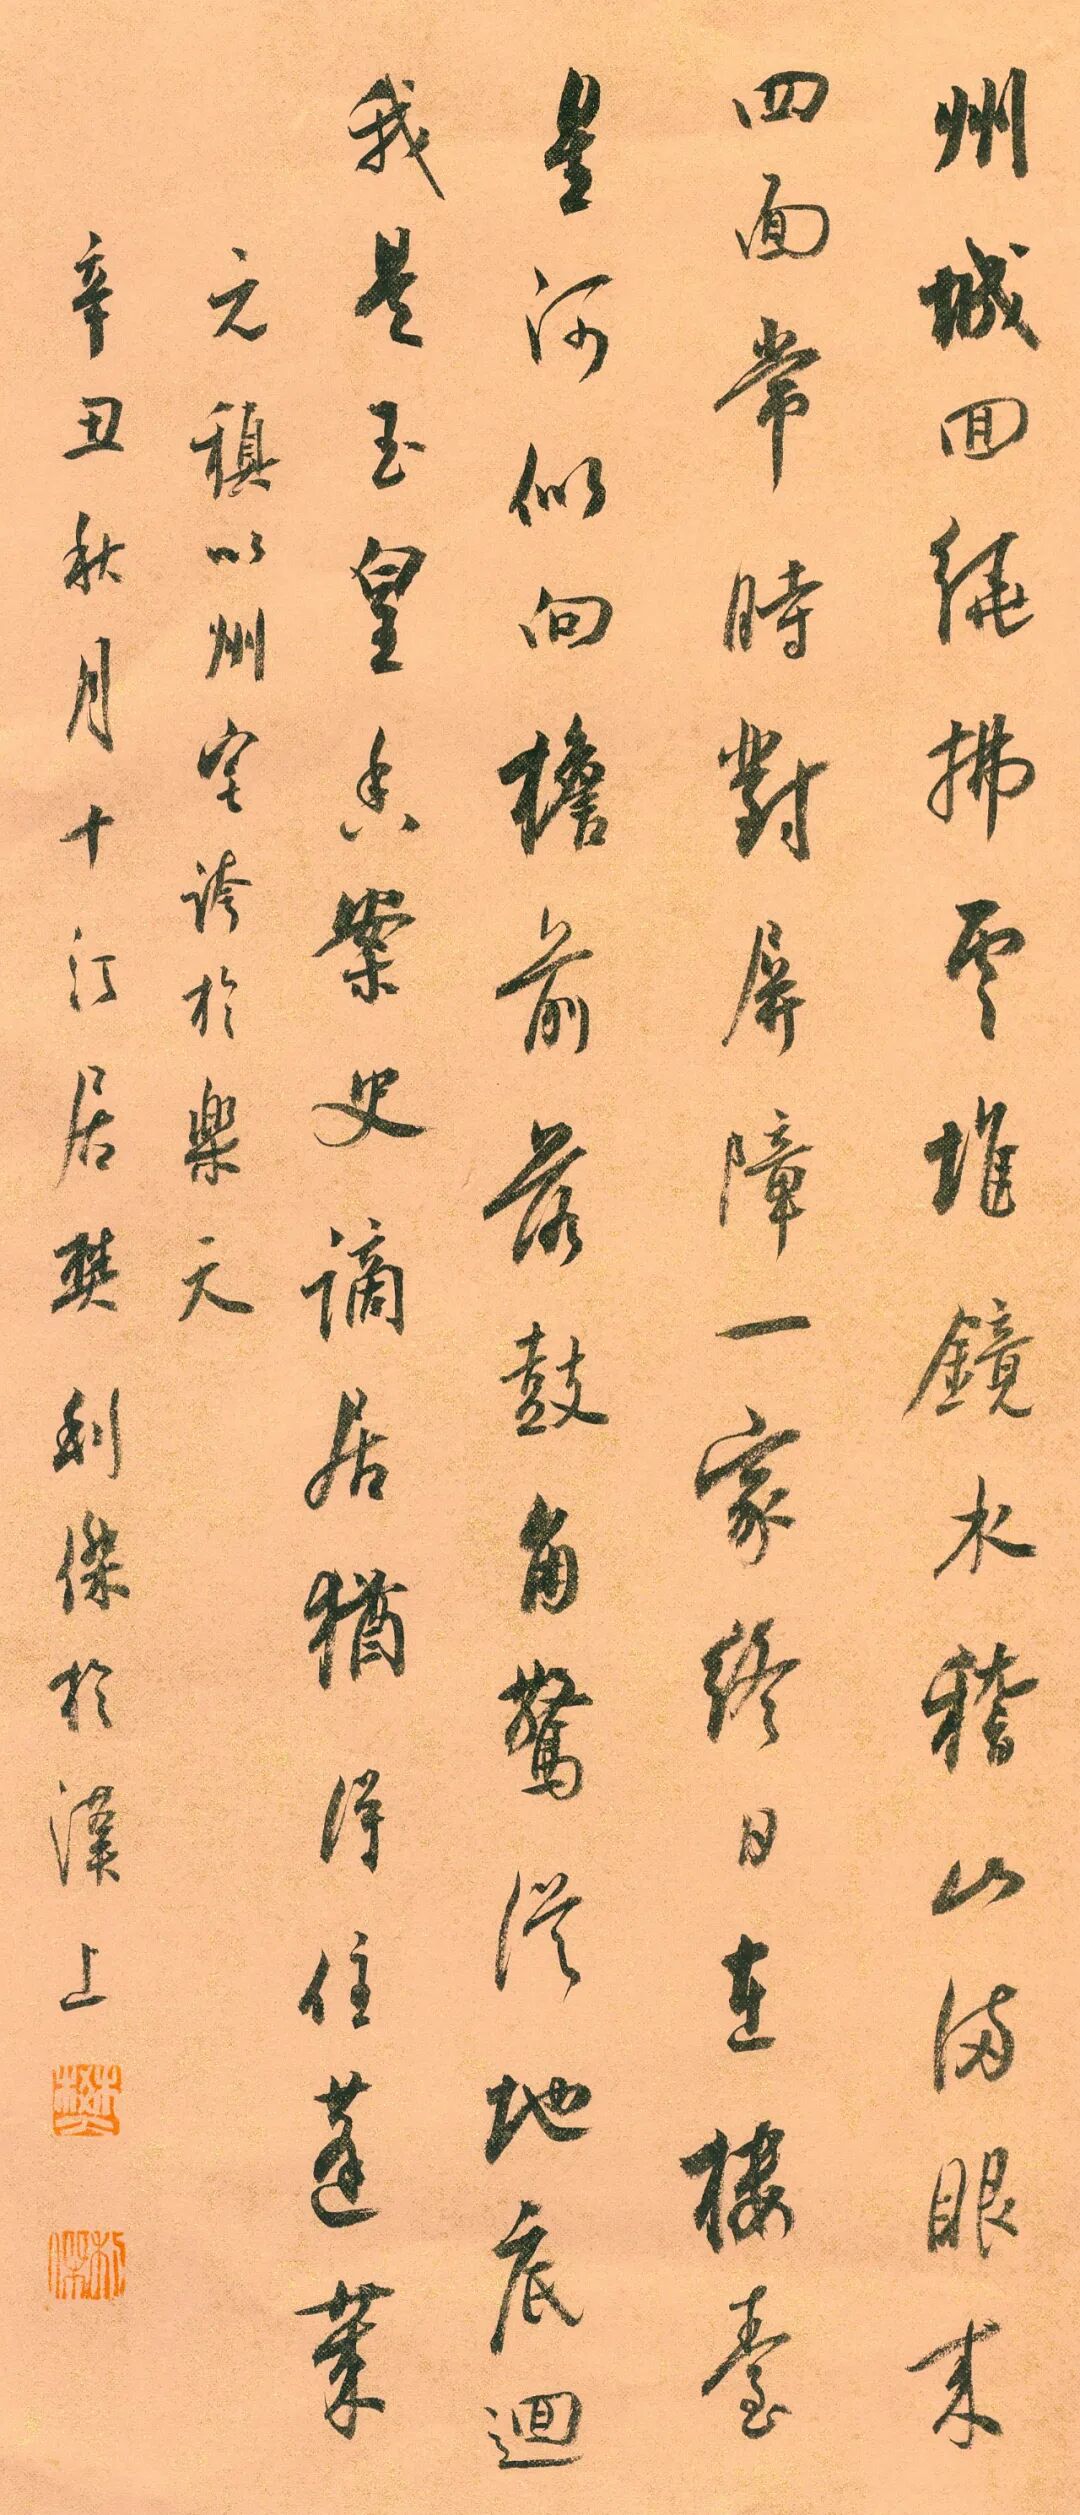 州城回繞拂雲堆鏡水稽山滿眼來
四面常時對屏障一家終日在樓臺
星河似向檐前落鼓角驚從地底迴
我是玉皇香案吏謫居猶得住蓬萊
元稹以州宅誇於樂天
辛丑秋月十汀居樊利傑於漢上
樊
利傑